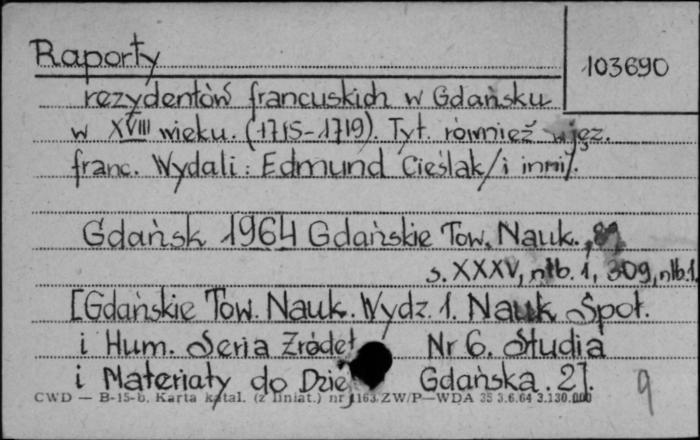 Raporty
103690
rezydentów francuskich w Gdańsku
w XVIII wieku. (1715-1719). Tyt. również w jęz.
franc. Wydali: Edmund Cieślak /i inni/.
Gdańsk 1964 Gdańskie Tow. Nauk., 8°
s. XXXV, nlb. 1, 309, nlb. 1.
[Gdańskie Tow. Nauk. Wydz. 1. Nauk Społ.
i Hum. Seria Źródeł Nr 6. Studia
i Materiały do Dziej Gdańska. 2].
CWD — B-15-b. Karta katal. (z liniat.) nr 1163 ZW/P—WDA 35 3.6.64 3.130.000
9